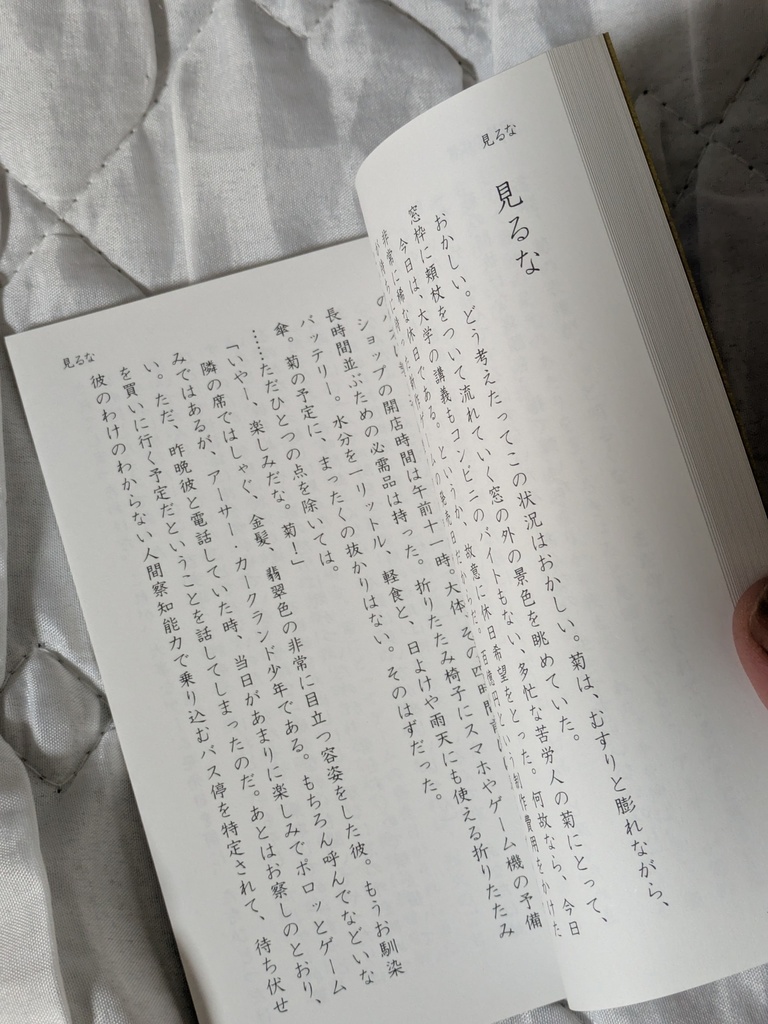 見るな
見るな
おかしい。どう考えたってこの状況はおかしい。菊は、むすりと膨れながら、
窓枠に頬杖をついて流れていく窓の外の景色を眺めていた。
今日は、大学の講義もコンビニのバイトもない、多忙な苦労人の菊にとって、
非常に稀な休日である。というか、故意に休日希望をとった。何故なら、今日
百億円という制作費用をかけた
ショップの開店時間は午前十一時。大体、その四時間前
長時間並ぶための必需品は持った。折りたたみ椅子にスマホやゲーム機の予備
バッテリー。水分を一リットル、軽食と、日よけや雨天にも使える折りたたみ
傘。菊の予定に、まったくの抜かりはない。そのはずだった。
……ただひとつの点を除いては。
「いやー、楽しみだな。菊！」
隣の席ではしゃぐ、金髪、翡翠色の非常に目立つ容姿をした彼。もうお馴染
みではあるが、アーサー・カークランド少年である。もちろん呼んでなどいな
い。ただ、昨晩彼と電話していた時、当日があまりに楽しみでポロッとゲーム
を買いに行く予定だということを話してしまったのだ。あとはお察しのとおり、
彼のわけのわからない人間察知能力で乗り込むバス停を特定されて、待ち伏せ
見るな